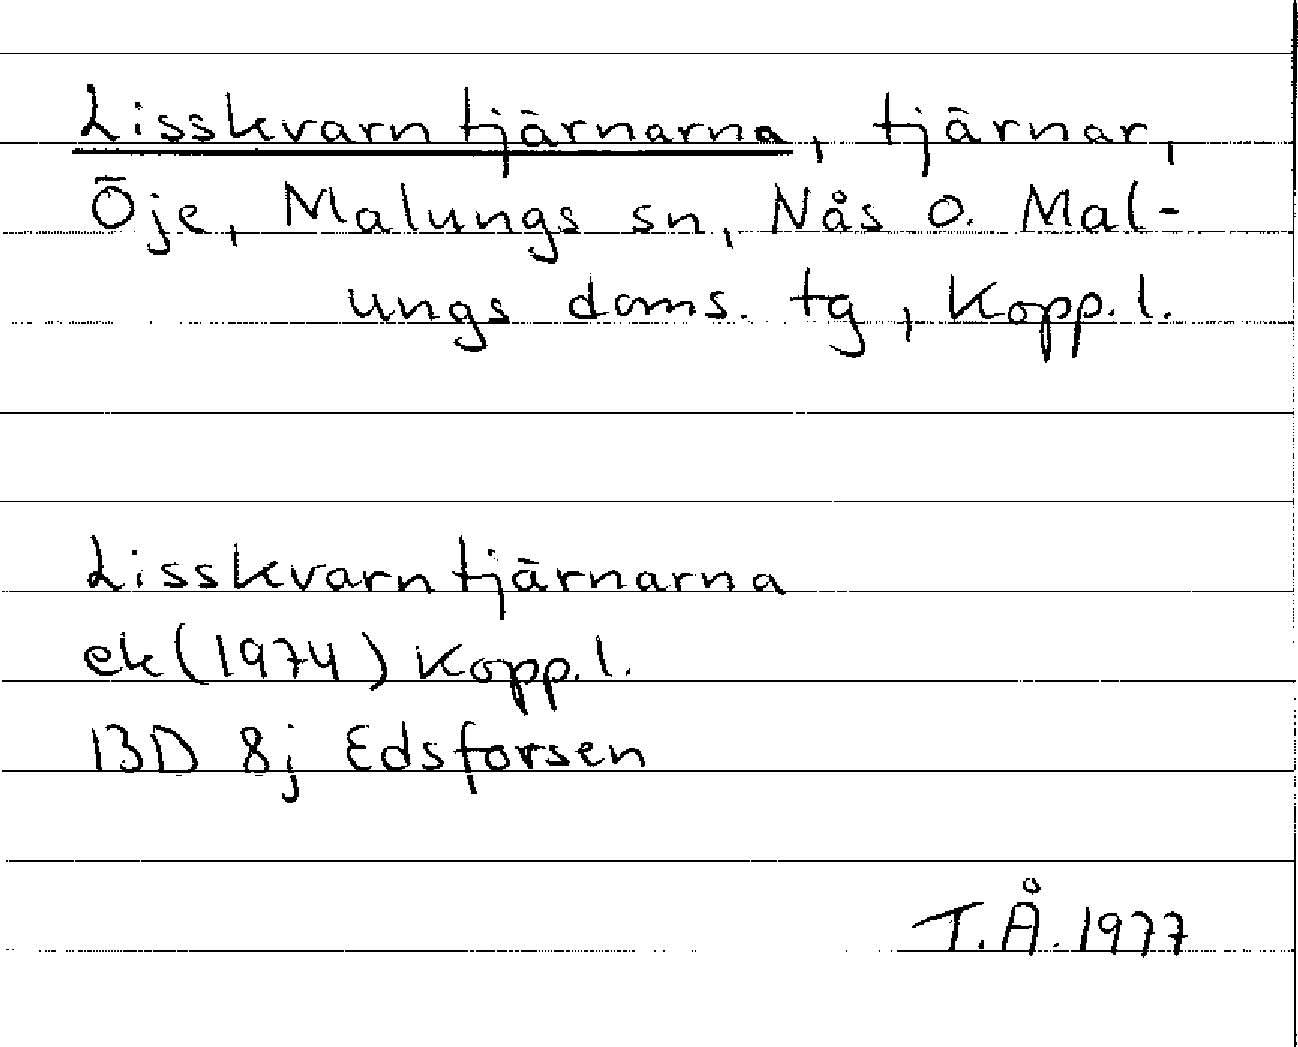 Lisskvarntjärnarna, tjärnar,
Öje, Malungs sn, Nås o. Mal-
ungs doms. tg, Kopp. l.
Lisskvarntjärnarna
ek (1974) Kopp. l.
13D 8j Edsforsen
T.Å. 1977